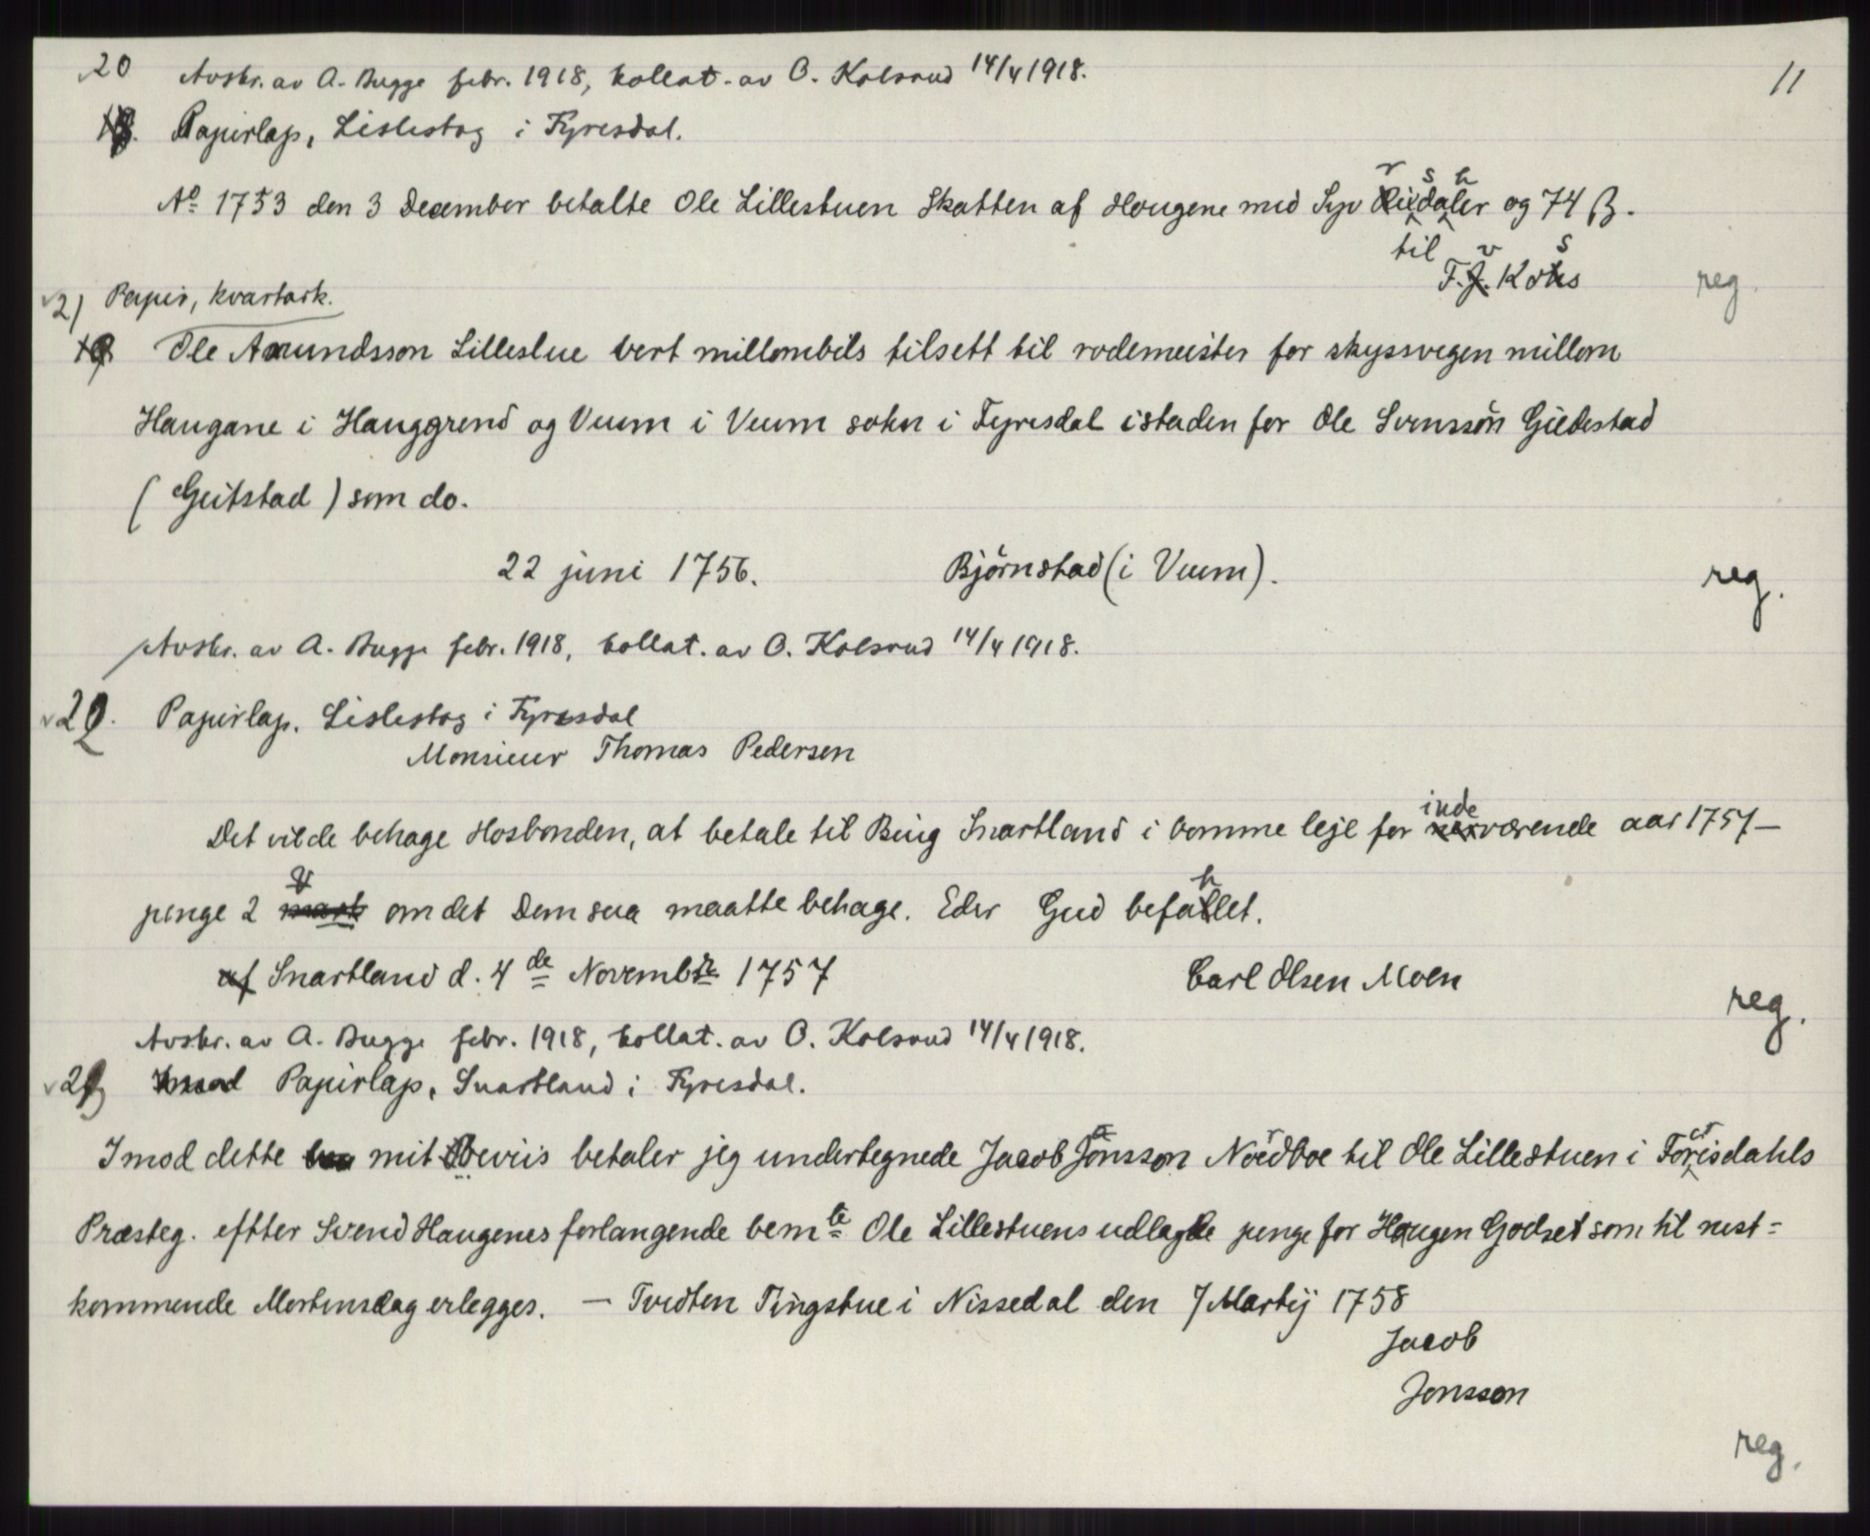 20 Avskr. av A. Bugge febr. 1918, kollat. av O. Kolsrud 14/4 1918. 11
Papirlap, Lislestog i Fyresdal.
Aº 1753 den 3 December betalte Ole Lillestuen Skatten af Hougene med Syv Rixdaler og 74 β.
til
F. J. Kohs
reg.
21 Papir, kvartark.
19 Ole Amundsson Lillestue vert millombils tilsett til rodemeister for skyssvegen millom
Haugane i Hauggrend og Veum i Veum sokn i Fyresdal istaden for Ole Svensson Giedestad
(Geitstad) som do.
22 juni 1756. Bjørnstad (i Veum). reg.
Avskr. av A. Bugge febr. 1918, kollat. av O. Kolsrud 14/4 1918.
22. Papirlap. Lislestog i Fyresdal
Monsieur Thomas Pedersen
Det vilde behage Hosbonden, at betale til Bing Snartland i komme leje for indeværende aar 1757 —
penge 2 om det Dem saa maatte behage. Eder Gud befahlet.
af Snartland d. 4 de Novembr 1757 Carl Olsen Moen
reg.
Avskr. av A. Bugge febr. 1918, kollat. av O. Kolsrud 14/4 1918.
Papirlap, Snartland i Fyresdal.
Imod dette mit Beviis betaler jeg undertegnede Jacob Jonsson Nordboe til Ole Lillestuen i Forisdahls
Præsteg. eftter Svend Haugenes forlangende bemte Ole Lillestuens udlagde penge for Haugen Godset som til nest=
kommende Mortensdag erlegges. — Tvedten Tingstue i Nissedal den 7 Martij 1758
Jacob
Jonsson
reg.